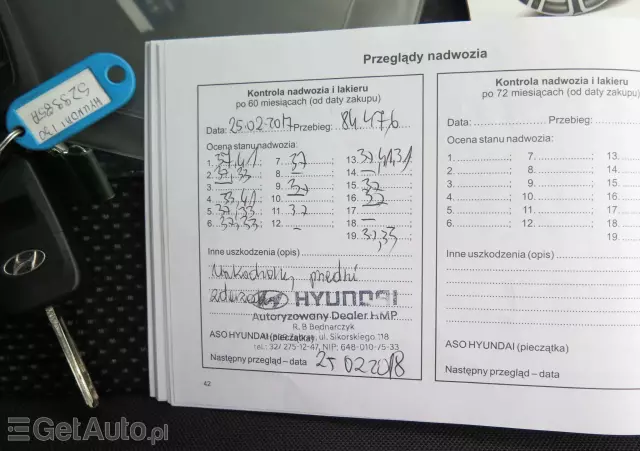 HYUNDAI I20
529385A
Przeglądy nadwozia
Kontrola nadwozia i lakieru
po 60 miesiącach (od daty zakupu)
Data: 25.02.2017 Przebieg: 84.476
Ocena stanu nadwozia:
1. 37,41; 7. 37; 13. 37,41,31
2. 37,33; 8. –; 14. –
3. –; 9. 37; 15. 37
4. 33,41; 10. –; 16. 37
5. 37,33; 11. 37; 17. –
6. 37,33; 12. –; 18. –
19. 37,33
Inne uszkodzenia (opis)
uszkodzony przedni
zderzak
HYUNDAI
Autoryzowany Dealer HMP
R. B Bednarczyk
ASO HYUNDAI (pieczątka) ul. Sikorskiego 118
tel.: 32/ 275-12-47, NIP: 648-010-75-33
Następny przegląd – data 25 02 2018
42
Kontrola nadwozia i lakieru
po 72 miesiącach (od daty zakupu)
Data: Przebieg:
Ocena stanu nadwozia:
1. ; 7. ; 13.
2. ; 8. ; 14.
3. ; 9. ; 15.
4. ; 10. ; 16.
5. ; 11. ; 17.
6. ; 12. ; 18.
19.
Inne uszkodzenia (opis)
ASO HYUNDAI (pieczątka)
Następny przegląd – data
GetAuto.pl